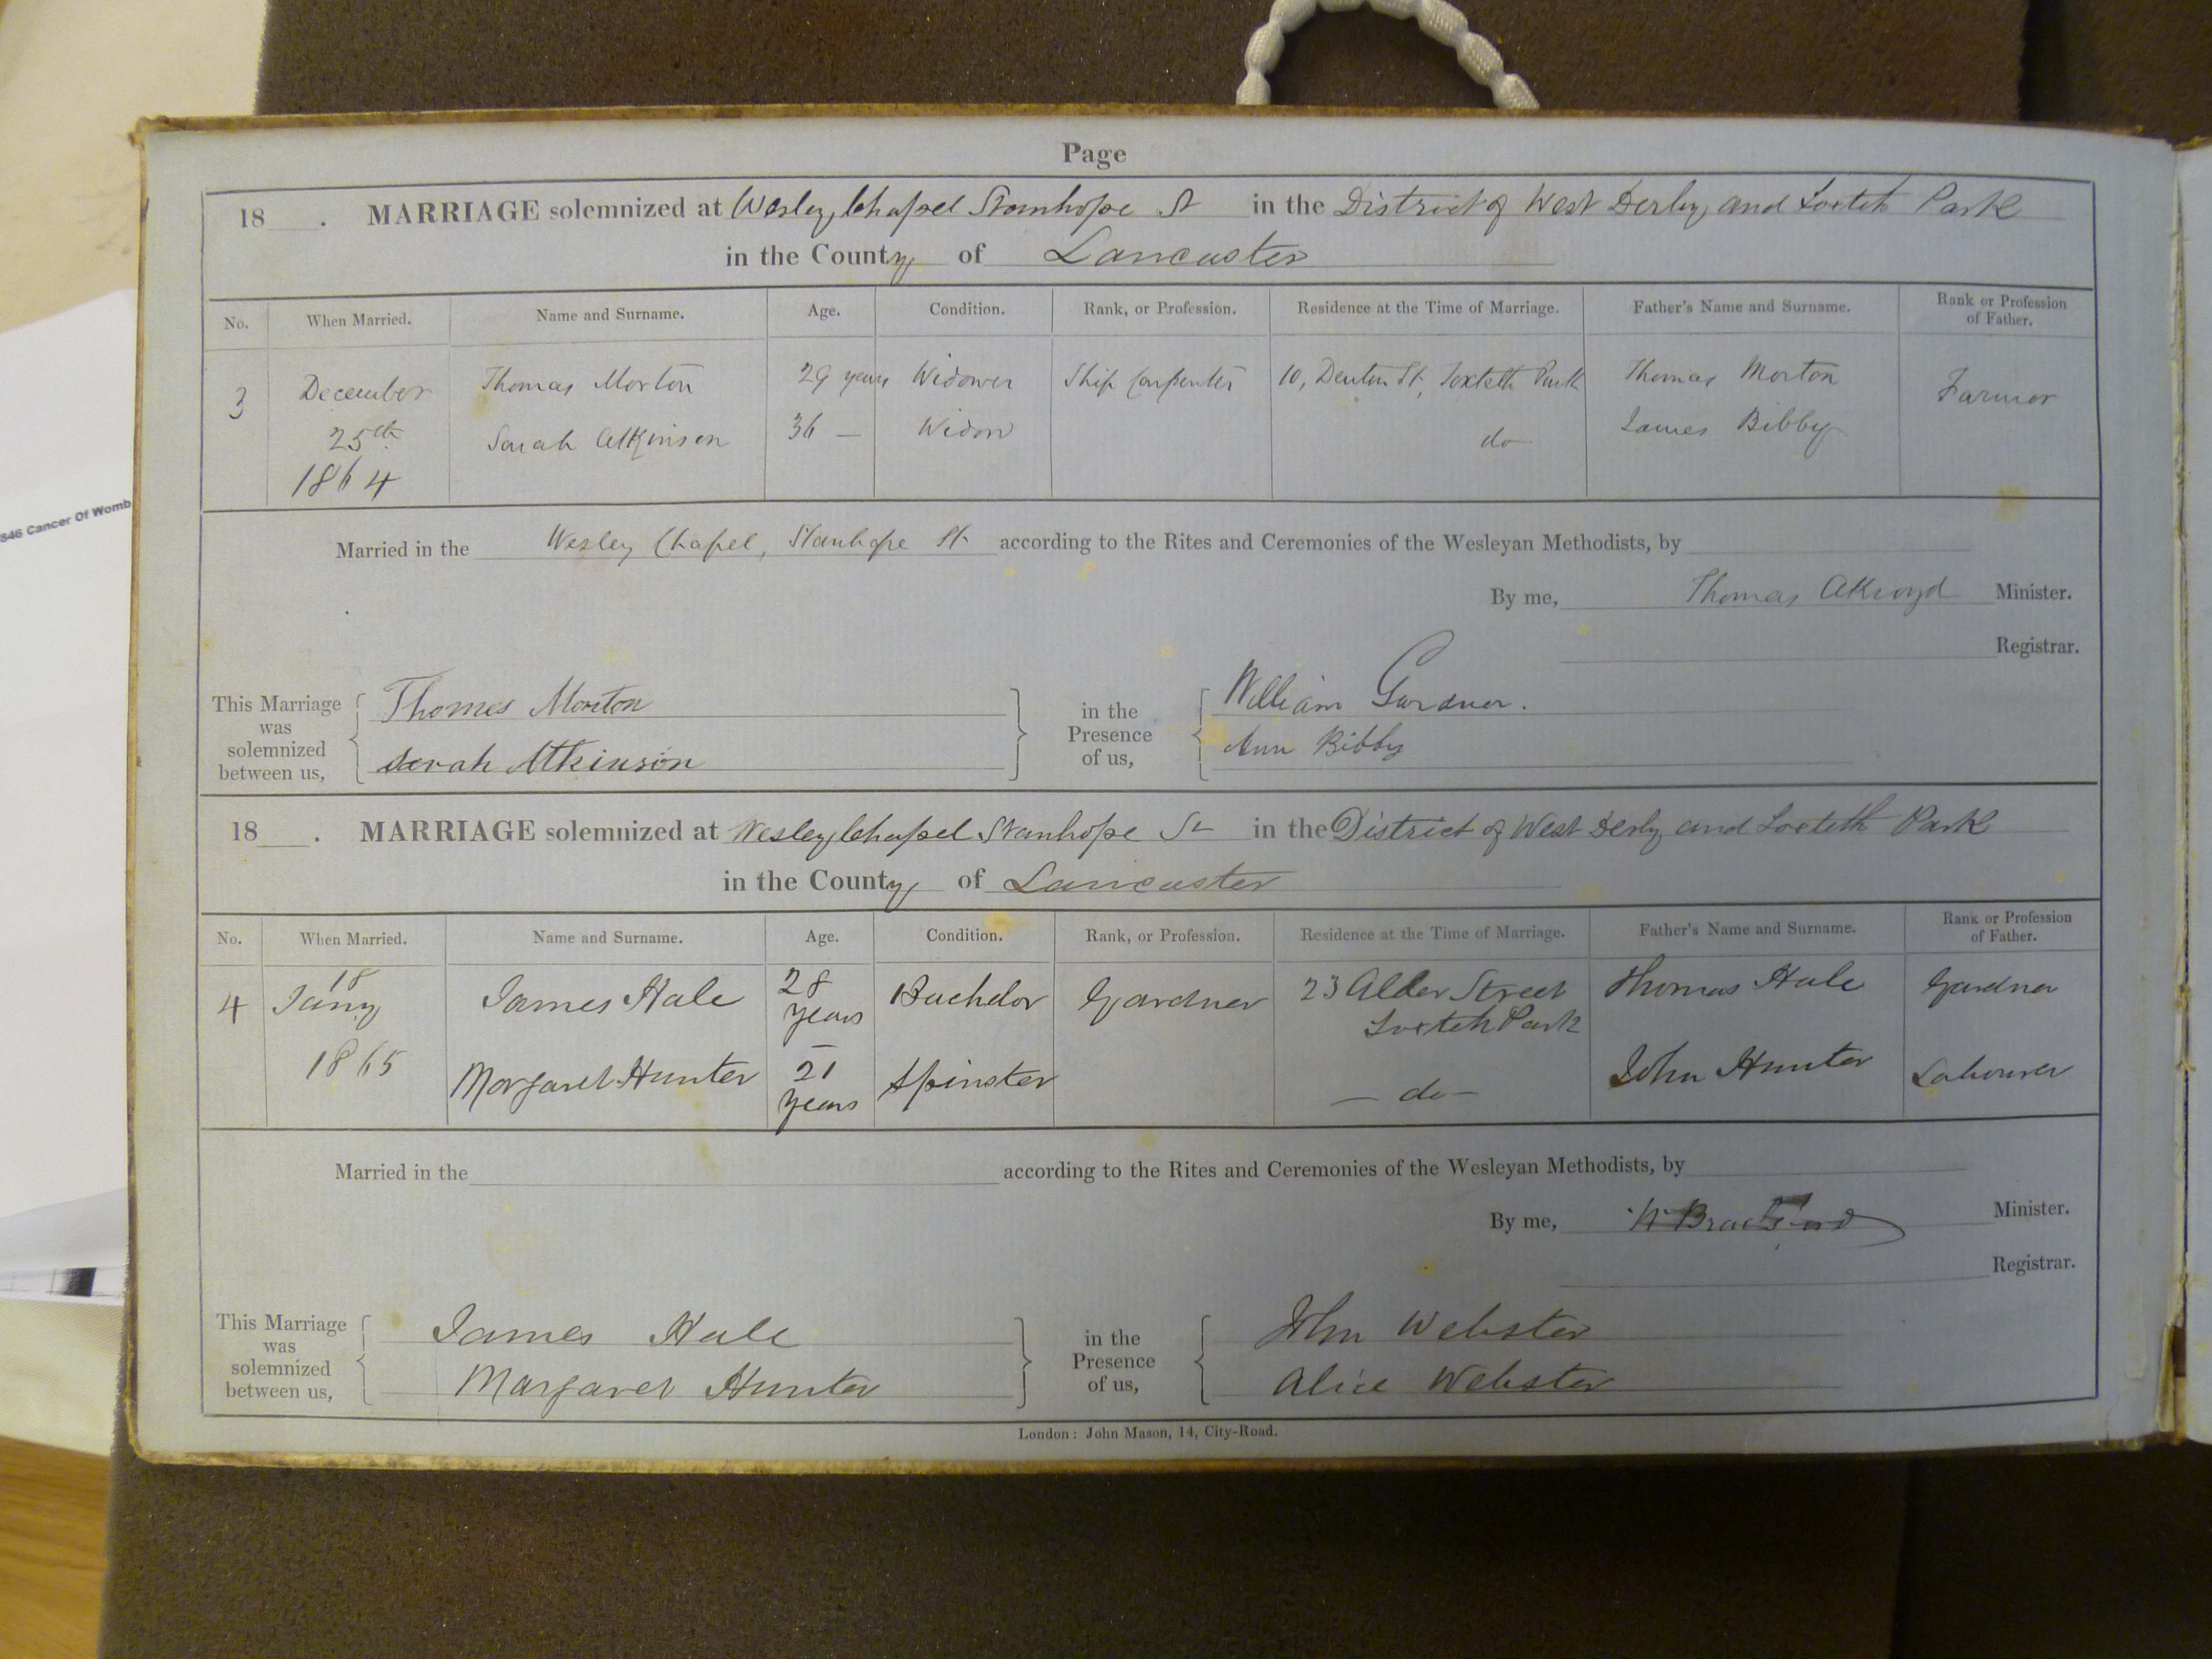 Page
18 . MARRIAGE solemnized at Wesley Chapel Stanhope St in the District of West Derby and Toxteth Park
in the County of Lancaster
No. When Married. Name and Surname. Age. Condition. Rank, or Profession. Residence at the Time of Marriage. Father's Name and Surname. Rank or Profession of Father.
3 December Thomas Morton 29 years Widower Ship Carpenter 10, Denton St, Toxteth Park Thomas Morton Farmer
25th Sarah Atkinson 36 — Widow do James Bibby
1864
Married in the Wesley Chapel, Stanhope St. according to the Rites and Ceremonies of the Wesleyan Methodists, by
By me, Thomas Akroyd Minister.
Registrar.
This Marriage was solemnized between us, Thomas Morton in the Presence of us, William Gardner.
Sarah Atkinson Ann Bibby
18 . MARRIAGE solemnized at Wesley Chapel Stanhope St in the District of West Derby and Toxteth Park
in the County of Lancaster
No. When Married. Name and Surname. Age. Condition. Rank, or Profession. Residence at the Time of Marriage. Father's Name and Surname. Rank or Profession of Father.
4 18 Jany James Hale 28 years Bachelor Gardner 23 Alder Street Toxteth Park Thomas Hale Gardner
1865 Margaret Hunter 21 years Spinster — do — John Hunter Labourer
Married in the according to the Rites and Ceremonies of the Wesleyan Methodists, by
By me, Minister.
Registrar.
This Marriage was solemnized between us, James Hale in the Presence of us, John Webster
Margaret Hunter Alice Webster
London: John Mason, 14, City-Road.
846 Cancer Of Womb